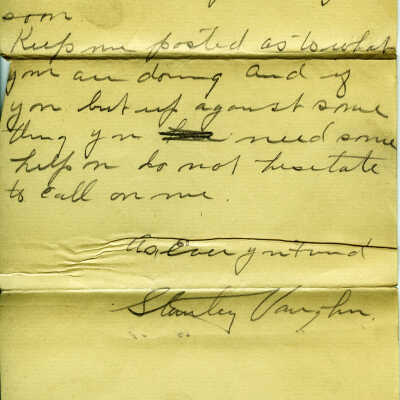 soon
Keep me posted as to what
you are doing and if
you but up against some
thing you need some
help on do not hesitate
to call on me.
As Ever yr friend
Stanley Vaughn.